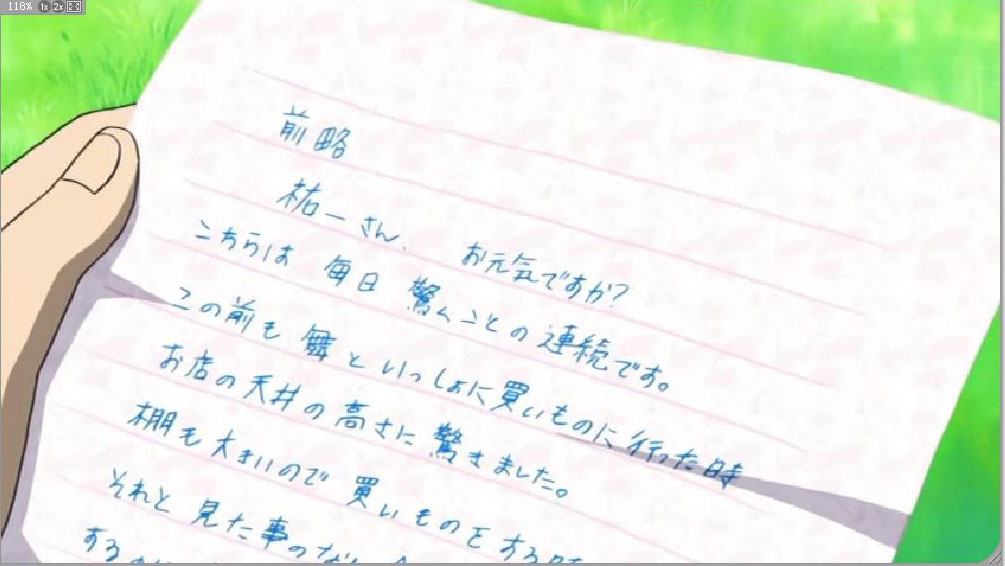 118% 1x 2x
前略
祐一さん. お元気ですか?
こちらは 毎日 驚くことの連続です。
この前も 舞といっしょに買いものに行った時
お店の天井の高さに驚きました。
棚も大きいので 買いものをする時
それと見た事のない
する